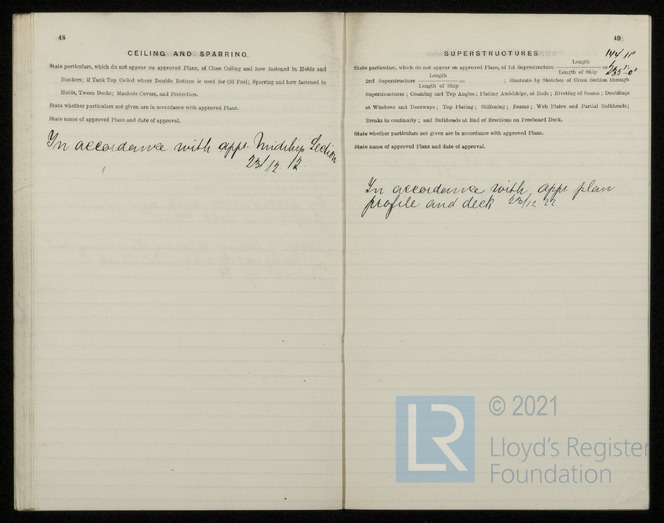 48
CEILING AND SPARRING.
State particulars, which do not appear on approved Plans, of Close Ceiling and how fastened in Holds and
Bunkers; if Tank Top Ceiled where Double Bottom is used for Oil Fuel; Sparring and how fastened in
Holds, Tween Decks; Manhole Covers, and Protection.
State whether particulars not given are in accordance with approved Plans.
State name of approved Plans and date of approval.
In accordance with appr. Midship Section
23/12.
49
SUPERSTRUCTURES
144' 11"
Length
State particulars, which do not appear on approved Plans, of 1st Superstructure
Length of Ship
Length
2nd Superstructure = ; illustrate by Sketches of Cross Section through
Length of Ship
Superstructures; Coaming and Top Angles; Plating Amidships, at Ends; Riveting of Seams; Doublings
at Windows and Doorways; Top Plating; Stiffening; Beams; Web Plates and Partial Bulkheads;
Breaks in continuity; and Bulkheads at End of Erections on Freeboard Deck.
State whether particulars not given are in accordance with approved Plans.
State name of approved Plans and date of approval.
In accordance with appr plan
profile and deck 23/12 22
LR
© 2021
Lloyd's Register
Foundation